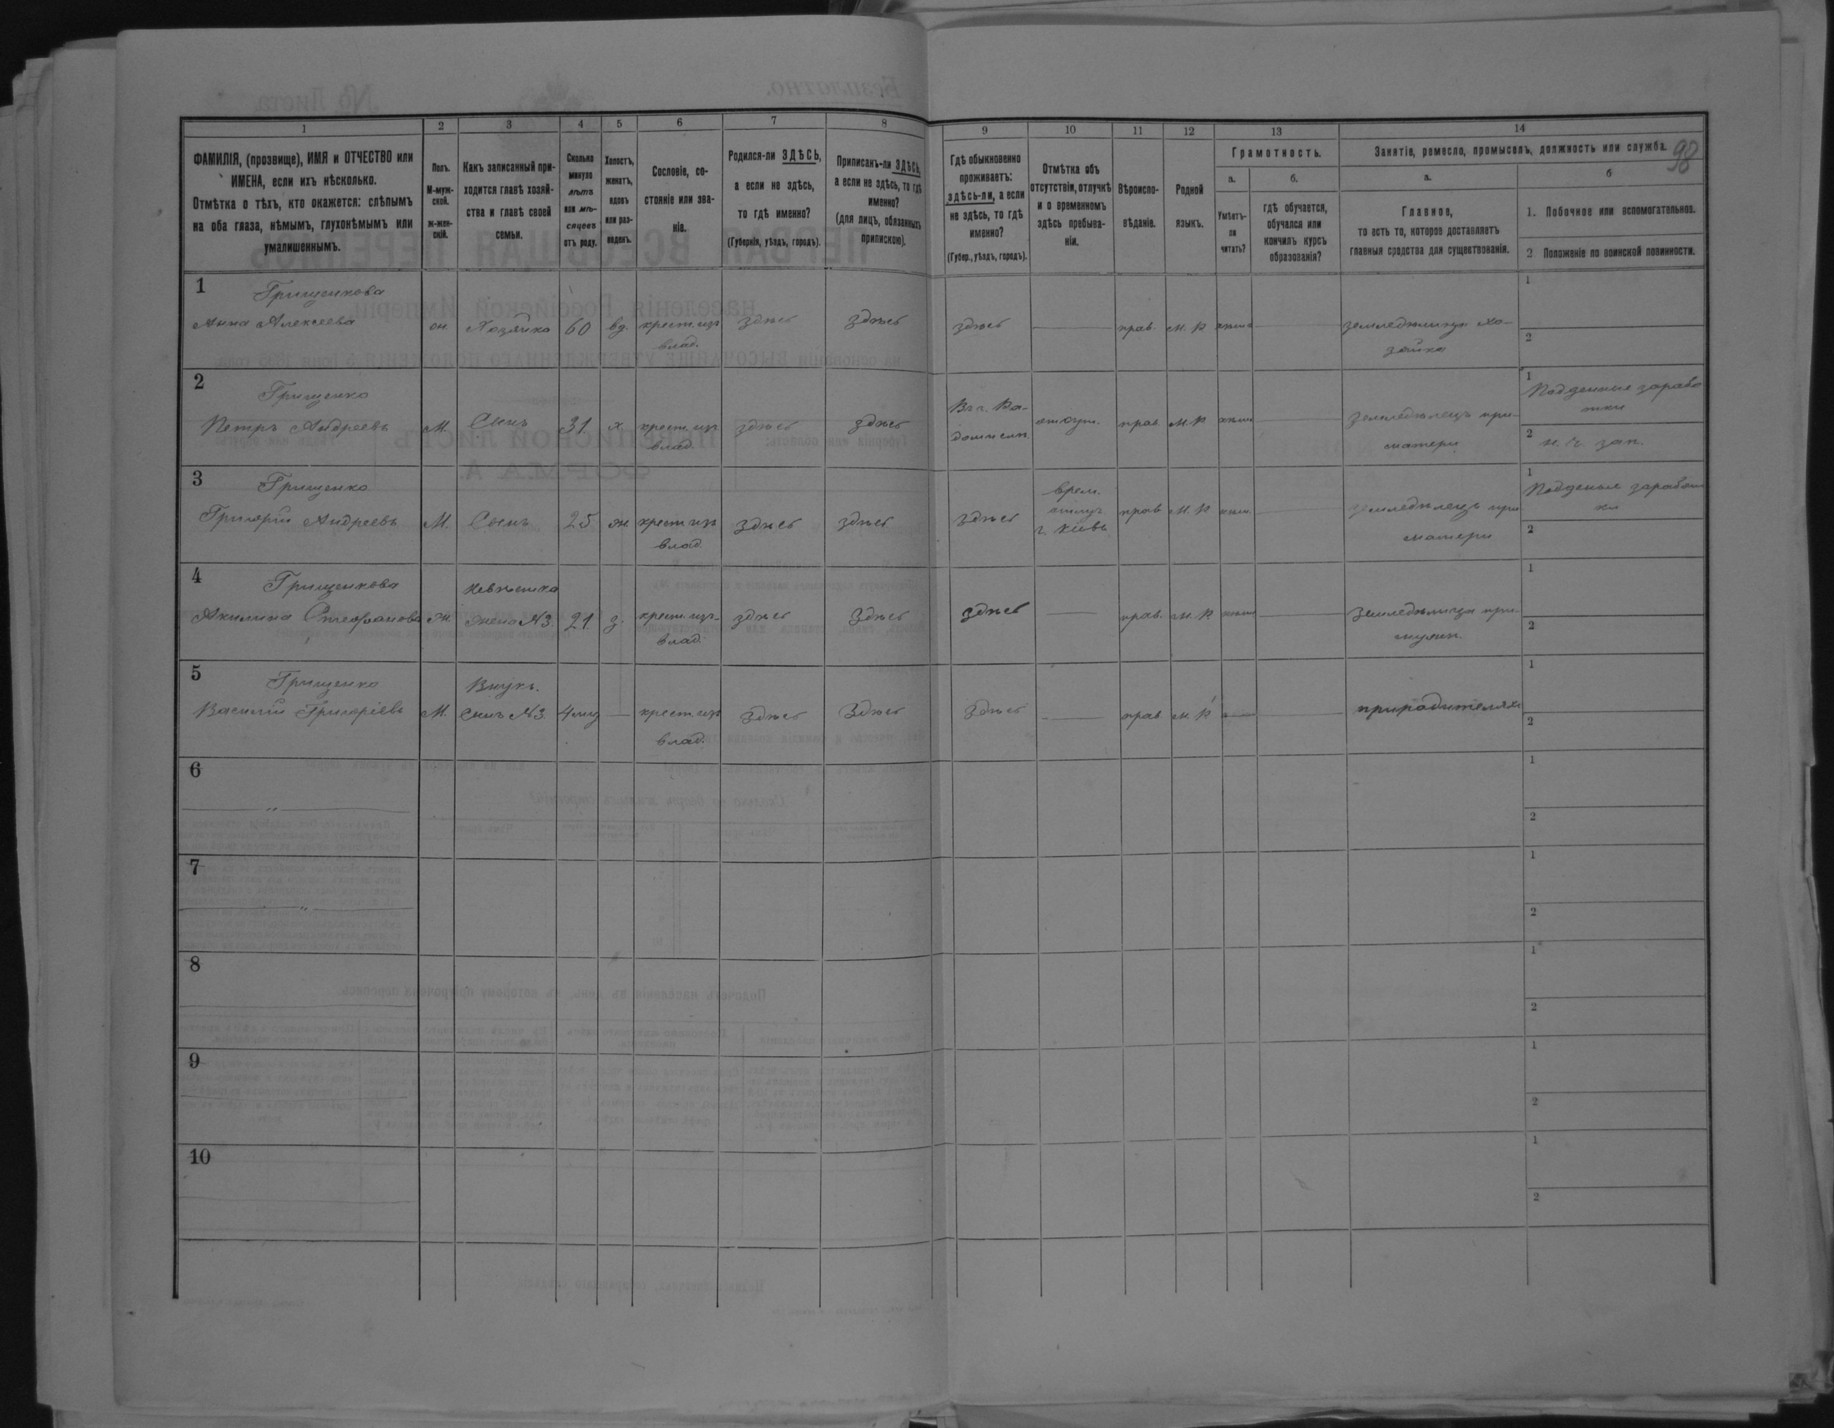 98
1 2 3 4 5 6 7 8 9 10 11 12 13 14
ФАМИЛІЯ, (прозвище), ИМЯ и ОТЧЕСТВО или
ИМЕНА, если ихъ нѣсколько.
Отмѣтка о тѣхъ, кто окажется: слѣпымъ
на оба глаза, нѣмымъ, глухонѣмымъ или
умалишеннымъ.
Полъ.
М-муж-
ской.
ж-жен-
скій.
Какъ записанный при-
ходится главѣ хозяй-
ства и главѣ своей
семьи.
Сколько
минуло
лѣтъ
или мѣ-
сяцевъ
отъ роду.
Холостъ,
женатъ,
вдовъ
или раз-
веденъ.
Сословіе, со-
стояніе или зва-
ніе.
Родился-ли ЗДѢСЬ,
а если не здѣсь,
то гдѣ именно?
(Губернія, уѣздъ, городъ).
Приписанъ-ли ЗДѢСЬ,
а если не здѣсь, то гдѣ
именно?
(для лицъ, обязанныхъ
припискою).
Гдѣ обыкновенно
проживаетъ:
здѣсь-ли, а если
не здѣсь, то гдѣ
именно?
(Губер., уѣздъ, городъ).
Отмѣтка объ
отсутствіи, отлучкѣ
и о временномъ
здѣсь пребыва-
ніи.
Вѣроиспо-
вѣданіе.
Родной
языкъ.
Грамотность.
а.
Умѣетъ-
ли
читать?
б.
гдѣ обучается,
обучался или
кончилъ курсъ
образованія?
Занятіе, ремесло, промыселъ, должность или служба.
а.
Главное,
то есть то, которое доставляетъ
главныя средства для существованія.
б
1. Побочное или вспомогательное.
2 Положеніе по воинской повинности.
1
Грищенкова
Анна Алексеева
ж. Хозяйка 60 вд. крест. из
влад.
здѣсь здѣсь здѣсь прав. м. р
земледѣлица хо-
зяйка
1
2
2
Грищенко
Петръ Андреевъ
М. Сынъ 31 х крест. из
влад.
здѣсь здѣсь
отсут. прав. м. р
земледѣлецъ при
матери
1 Поденные зарабо
тки
2
3
Грищенко
Григорій Андреевъ
М. Сынъ 25 ж крест. из
влад
здѣсь здѣсь здѣсь
врем.
отлуч
г. Кіевъ
прав м. р
земледѣлецъ при
матери
1 Поденные заработ
ки
2
4
Грищенкова
Акилина Стефанова
ж.
Невѣстка
жена №3
21 з. крест. из
влад
здѣсь здѣсь здѣсь прав. м. р
земледѣлица при
мужи
1
2
5
Грищенко
Василій Григоріевъ
М.
Внукъ.
Сынъ №3
4 мц крест. из
влад.
здѣсь здѣсь здѣсь прав м. р
при родителях
1
2
6
1
2
7
1
2
8
1
2
9
1
2
10
1
2